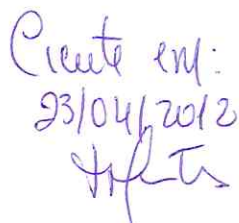 Ciente em:
23/04/2012